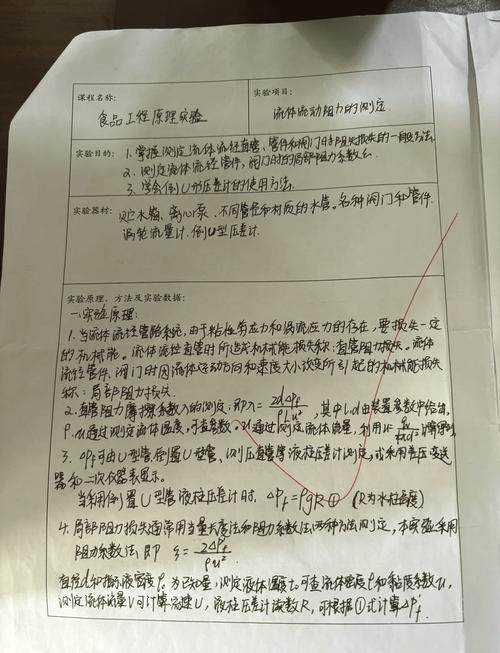 课程名称:
食品工程原理实验
实验项目:
流体流动阻力的测定.
实验目的: 1. 掌握测定流体流经直管、管件和阀门时阻力损失的一般方法.
2. 测定流体流经管件, 阀门时的局部阻力系数ξ.
3. 学会倒U形压差计的使用方法.
实验器材: 贮水箱、离心泵、不同管径和材质的水管. 各种阀门和管件.
涡轮流量计. 倒U型压差计.
实验原理、方法及实验数据:
一. 实验原理:
1. 当流体流经管路系统, 由于粘性剪应力和涡流应力的存在, 要损失一定
的机械能. 流体流经直管时所造成机械能损失称: 直管阻力损失. 流体
流经管件、阀门时因流体运动方向和速度大小改变所引起的机械能损失
称: 局部阻力损失.
2. 直管阻力摩擦系数λ的测定: 即 λ = 2dΔPf / ρLu², 其中L、d由装置参数中给出,
ρ、μ通过测定流体温度, 可查参数. u通过测定流体流量, 利用
3. ΔPf可由U型管、倒置U型管、测压直管等液柱压差计测定, 或采用差压变送
器和二次仪表显示.
当采用倒置U型管液柱压差计时, ΔPf = ρgR ① (R为水柱高度)
4. 局部阻力损失通常用当量长度法和阻力系数法两种方法测定, 本实验采用
阻力系数法, 即 ξ = 2ΔPf' / ρu².
直径d和指示液密度ρ0为已知量, 测定液体温度t. 可查流体密度ρ和黏度系数μ,
测定流体流量V可计算流速U, 液柱压差计读数R, 可根据①式计算ΔPf'